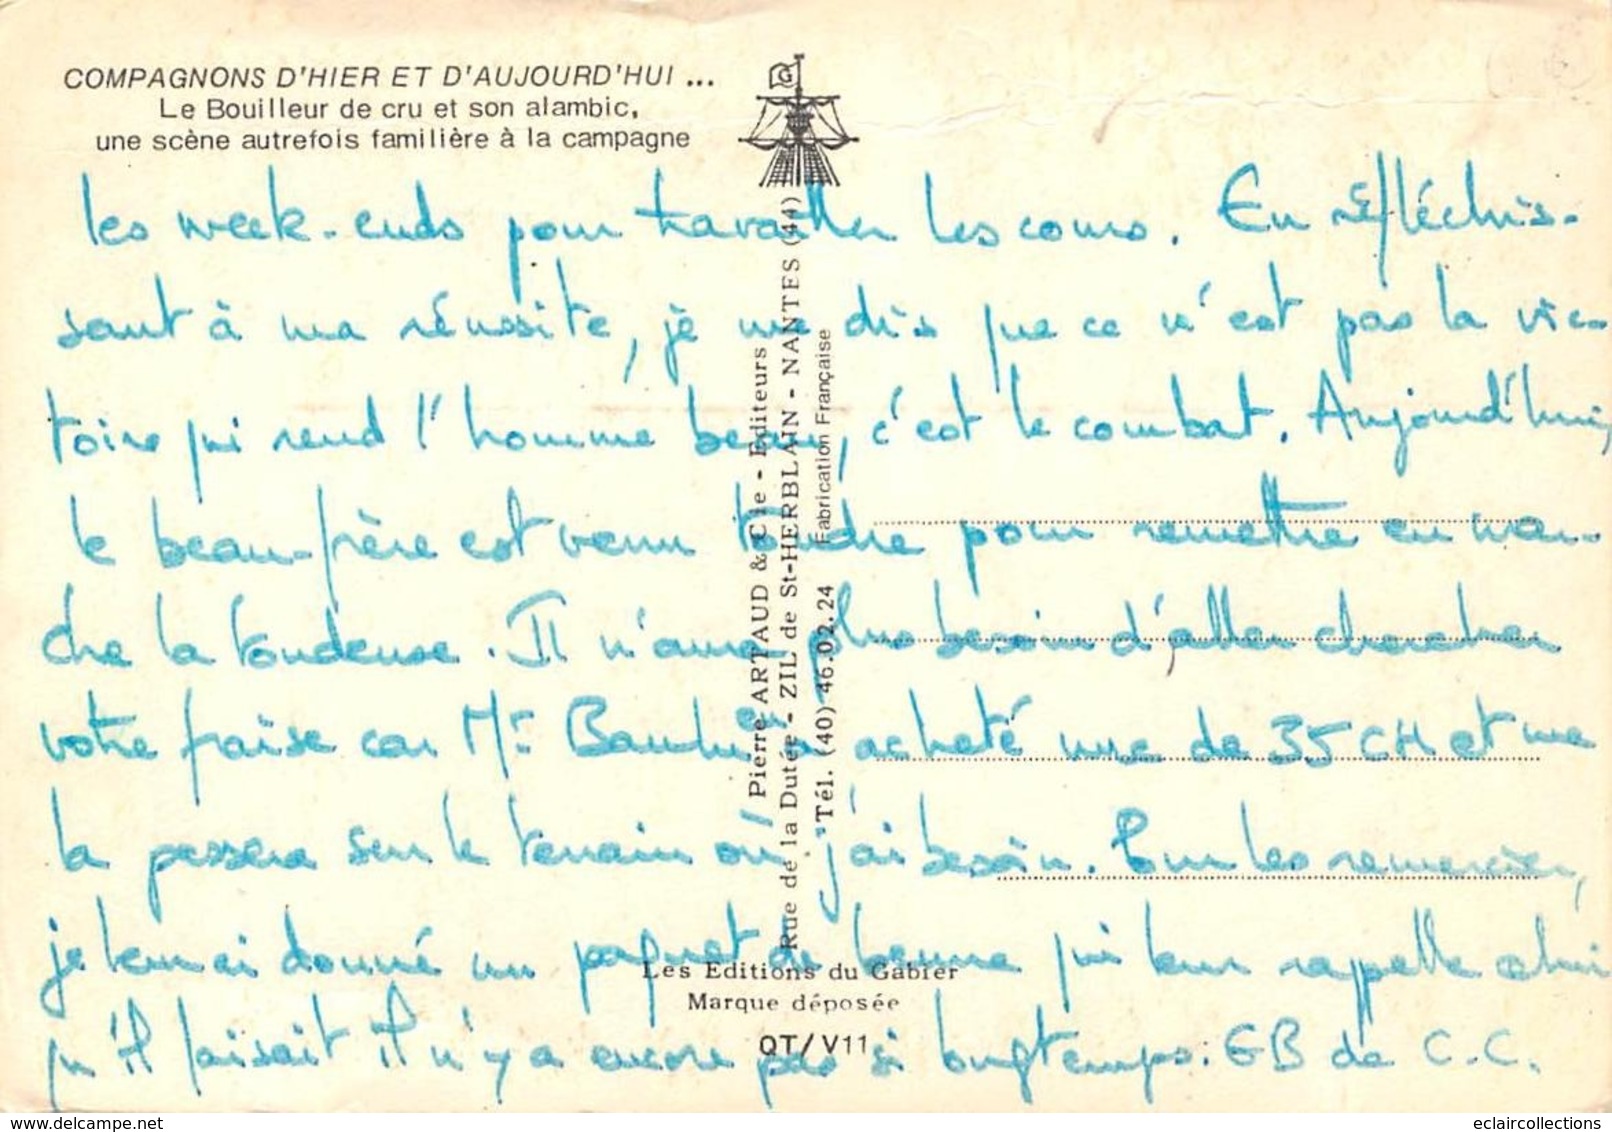 COMPAGNONS D'HIER ET D'AUJOURD'HUI ...
Le Bouilleur de cru et son alambic,
une scène autrefois familière à la campagne
G
les week-ends pour travailler les cours. En réfléchis-
sant à ma réussite, je me dis que ce n'est pas la vic-
toire qui rend l'homme beau, c'est le combat. Aujourd'hui,
le beau-frère est venu tondre pour remettre en mar-
che la tondeuse. Il n'aura plus besoin d'aller chercher
votre fraise car Mr a acheté une de 35 CH et me
la passera sur le terrain où j'ai besoin. Pour les remercier,
je leur ai donné un paquet de beurre qui leur rappelle celui
qu'il faisait il n'y a encore pas si longtemps: GB de C.C.
Pierre ARTAUD & Cie - Editeurs
Rue de la Dutée - ZIL de St-HERBLAIN - NANTES (44)
Tél. (40) 46.02.24 Fabrication Française
Les Editions du Gabier
Marque déposée
QT/V11
eclaircollections